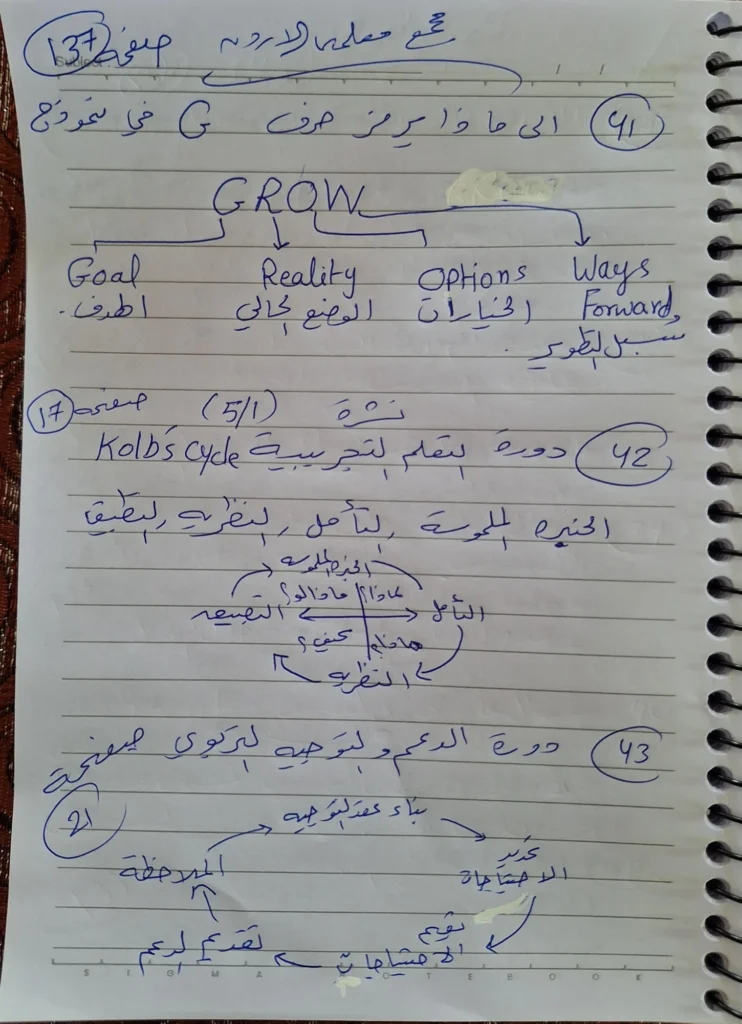 تجمع معلمين الاردن صفحة 137
41 الى ماذا يرمز حرف G في نموذج
GROW
Goal Reality Options Ways
الهدف. الوضع الحالي الخيارات Forward,
سبل التطوير.
نشرة (5/1) صفحة 17
42 دورة التعلم التجريبية Kolb's Cycle
الخبره الملموسة, التأمل, النظريه, التطبيق
الخبره الملموسه
لماذا؟ ماذا لو؟
التأمل التطبيق
ماذا؟ كيف؟
النظريه
43 دورة الدعم والتوجيه التربوي صفحة
21
بناء عقد التوجيه
تحديد
الاحتياجات الملاحظة
تقيم
الاحتياجات تقديم الدعم
SIGMA NOTEBOOK